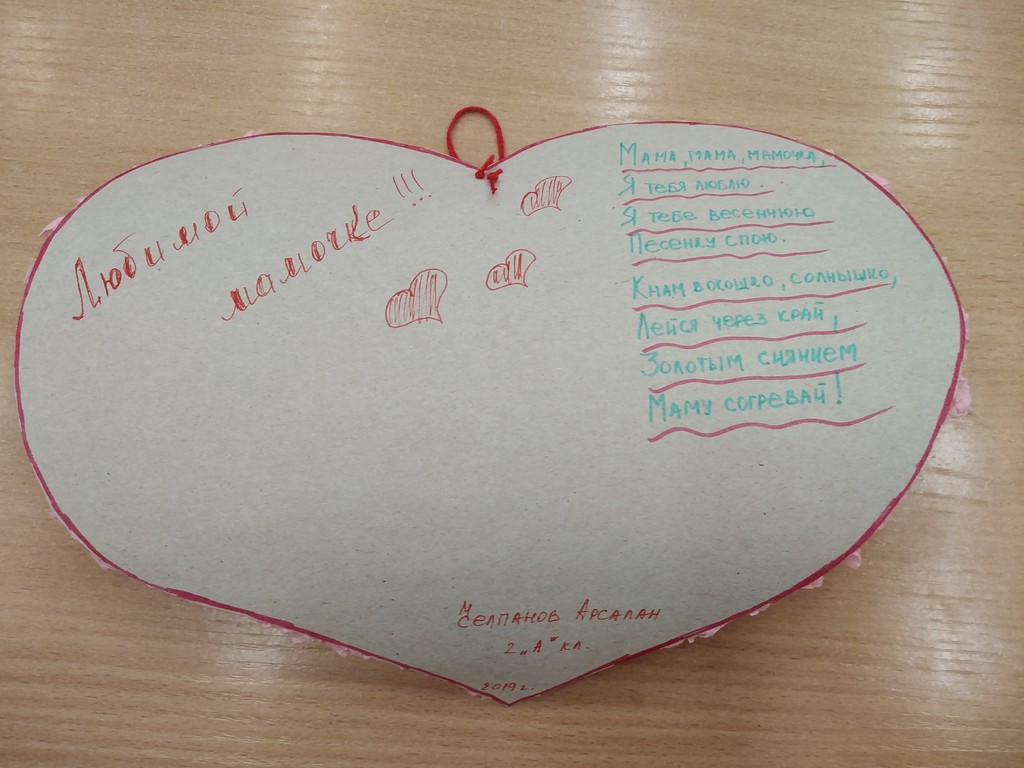 Любимой
мамочке!!!
Мама, мама, мамочка,
Я тебя люблю.
Я тебе весеннюю
Песенку спою.
К нам в окошко, солнышко,
Лейся через край,
Золотым сиянием
Маму согревай!
Челпанов Арсалан
2 „А" кл.
2019 г.